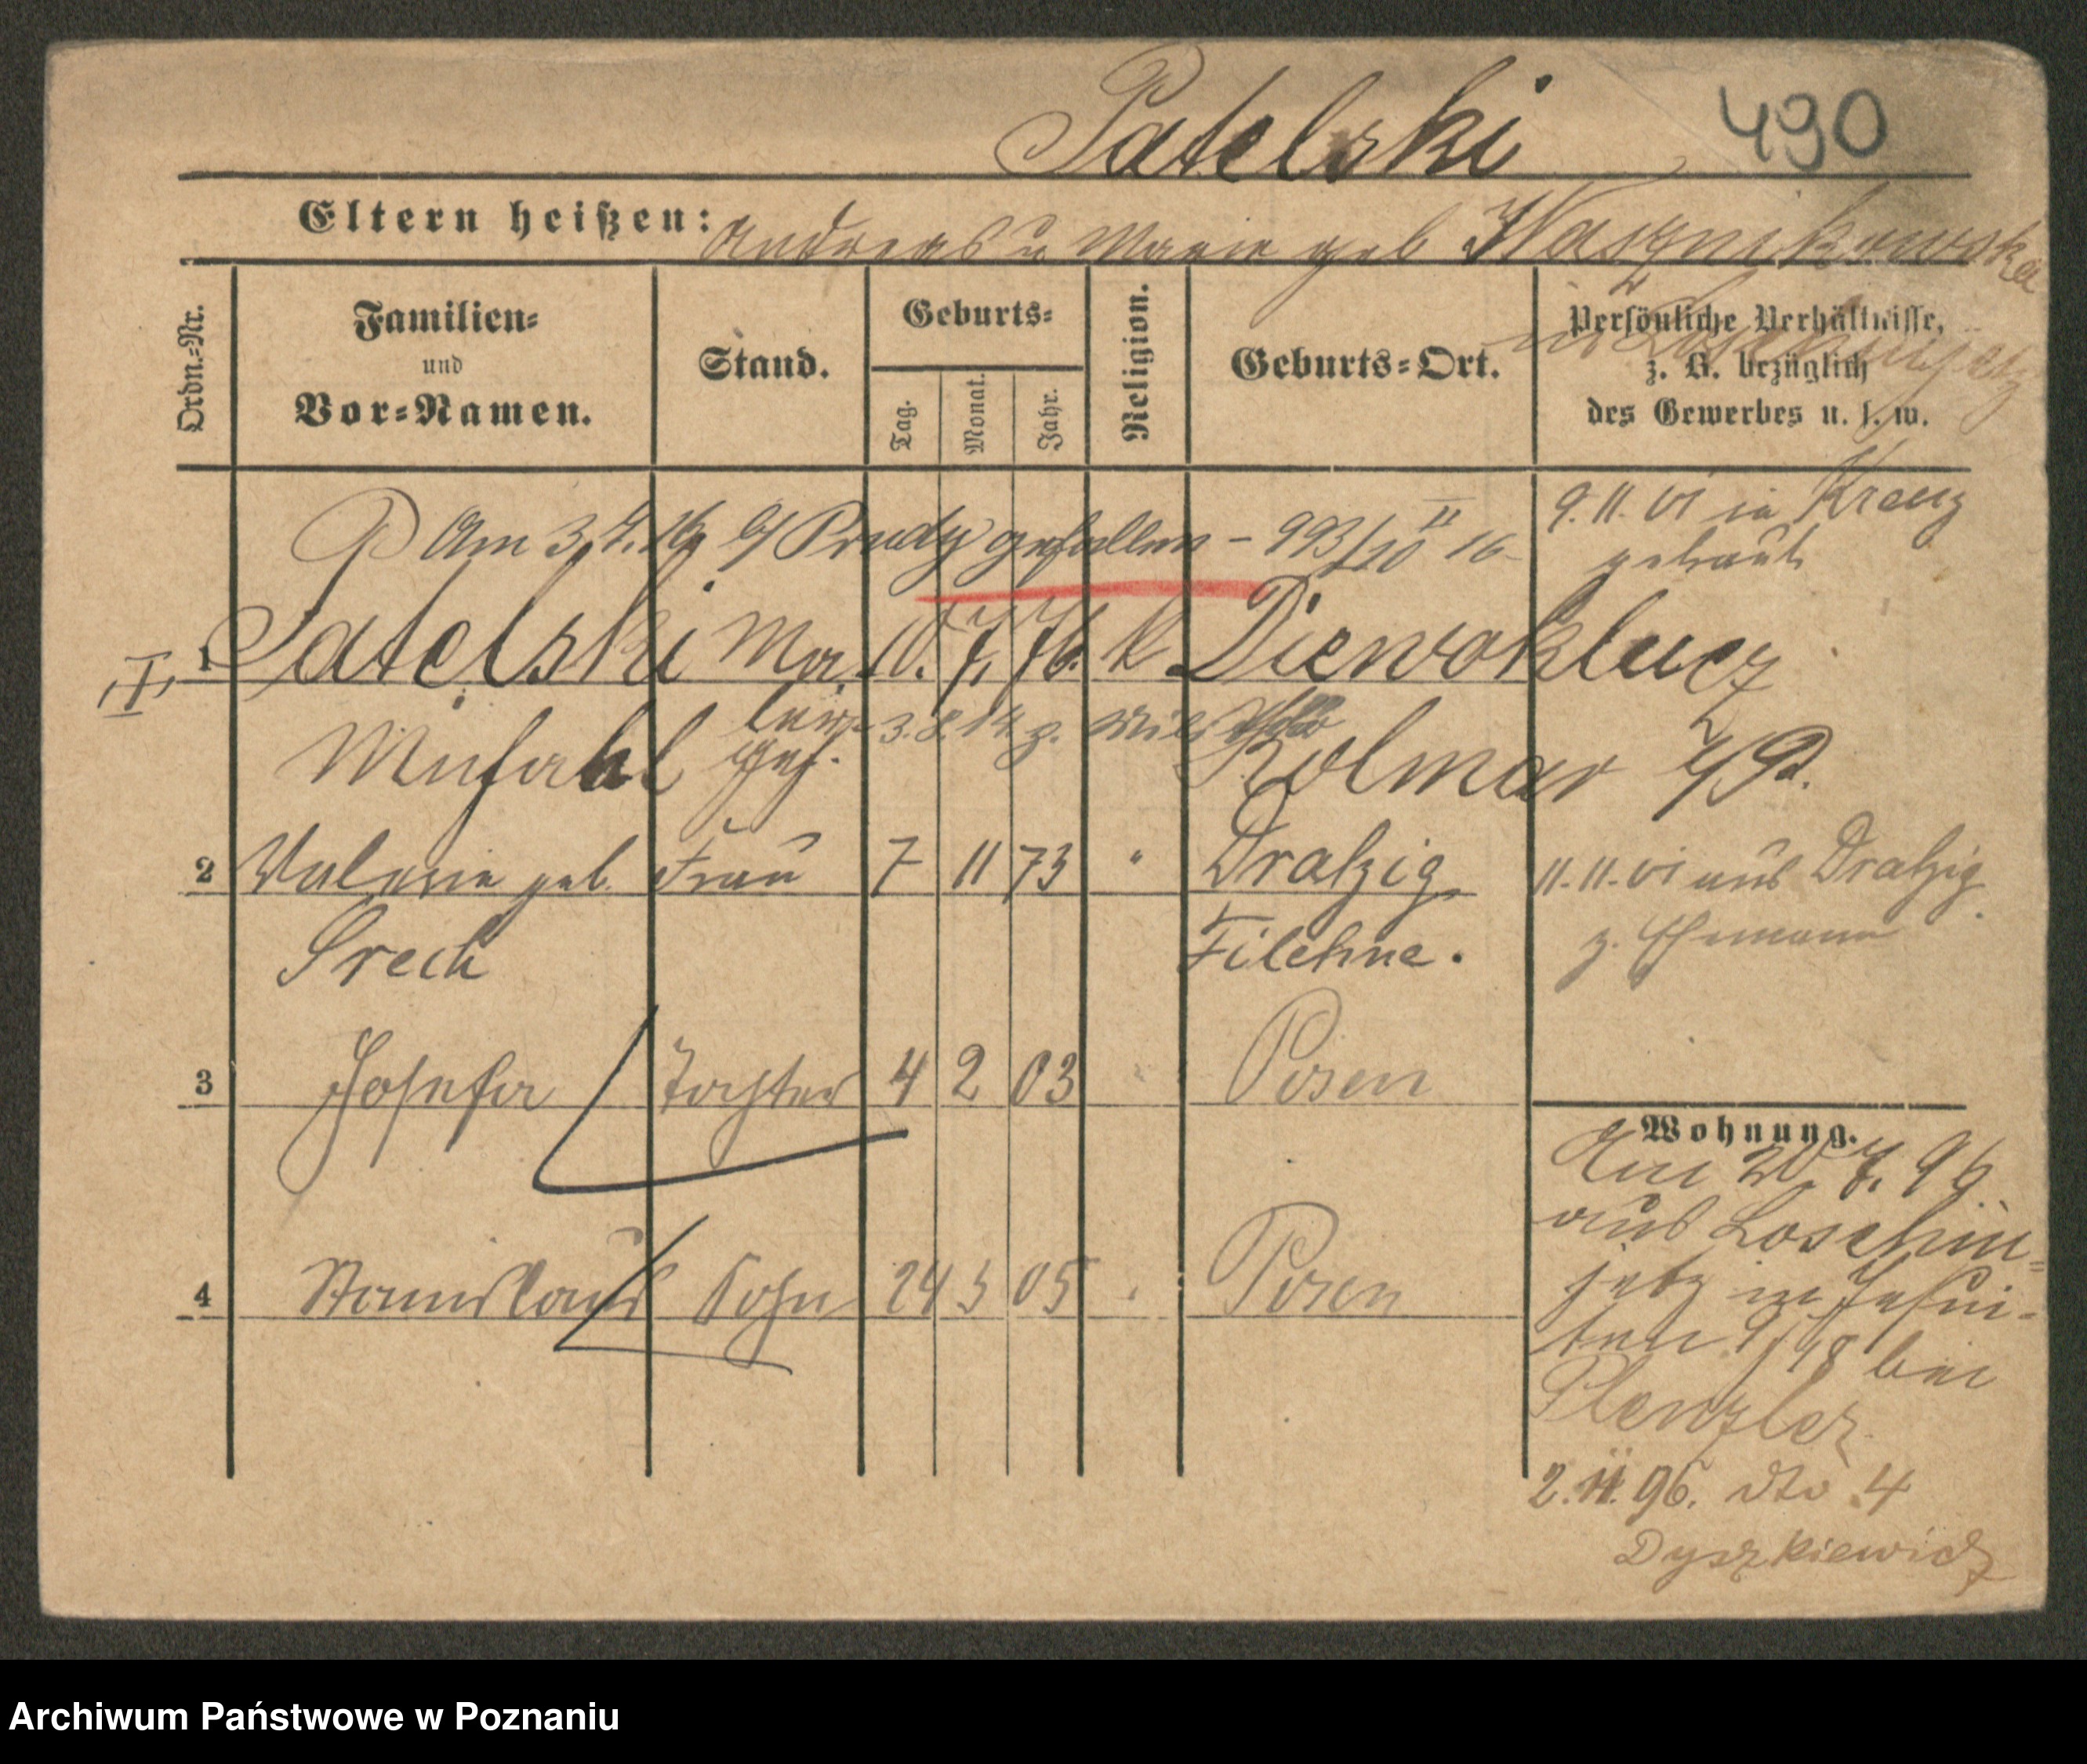 Patelski 490
Eltern heißen: Andreas u Marie geb Wasznikowska
in
Ordn.=Nr.
Familien=
und
Vor=Namen.
Stand.
Geburts=
Tag.
Monat.
Jahr.
Religion.
Geburts=Ort.
Persönliche Verhältnisse,
z. B. bezüglich
des Gewerbes u. s. w.
Am 3. gefallen – 993/10 II 16
9. 11. 01 in Kreuz
getraut
1 Patelski Ma 10. 7. 76. k Dziewoklucz
3.8.14 z.
Michael ler geh. Kolmar i/P.
2 Valerie geb. Frau 7 11 73 " Dratzig
Srech Filehne.
11. 11. 01 aus Dratzig
z. Ehemann
3 Josefa Tochter 4 2 03 " Posen
4 Stanislaus Sohn 24 3 05 " Posen
Wohnung.
Am 20. 7. 96
aus Loschin=
jetz in Jesui-
ten 9/18 bei
Plenzler
2. 11. 96. dto 4
Dyszkiewicz
Archiwum Państwowe w Poznaniu